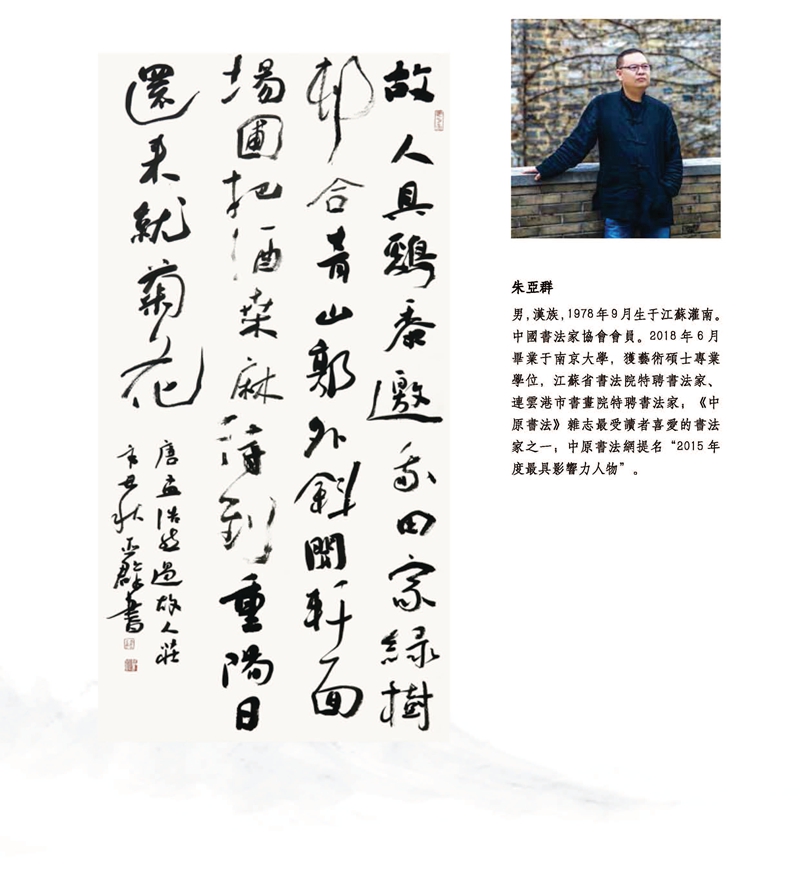 故人具鷄黍邀我田家緑樹
邨合青山郭外斜開軒面
場圃把酒桑麻待到重陽日
還来就菊花
唐孟浩然過故人莊
辛丑秋亞群書
朱亞群
男，漢族，1978年9月生于江蘇灌南。
中國書法家協會會員。2018年6月
畢業于南京大學，獲藝術碩士專業
學位，江蘇省書法院特聘書法家、
連雲港市書畫院特聘書法家；《中
原書法》雜志最受讀者喜愛的書法
家之一；中原書法網提名“2015年
度最具影響力人物”。